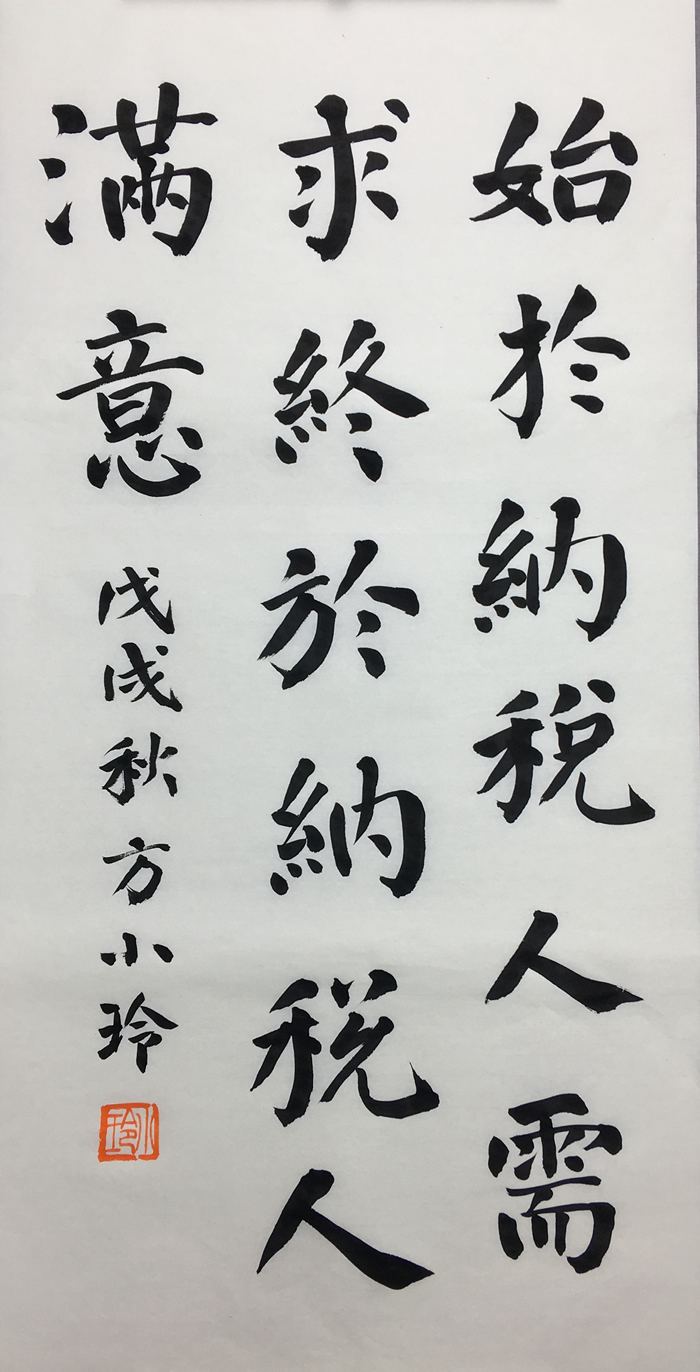 始於納税人需
求終於納税人
滿意
戊戌秋方小玲
小玲